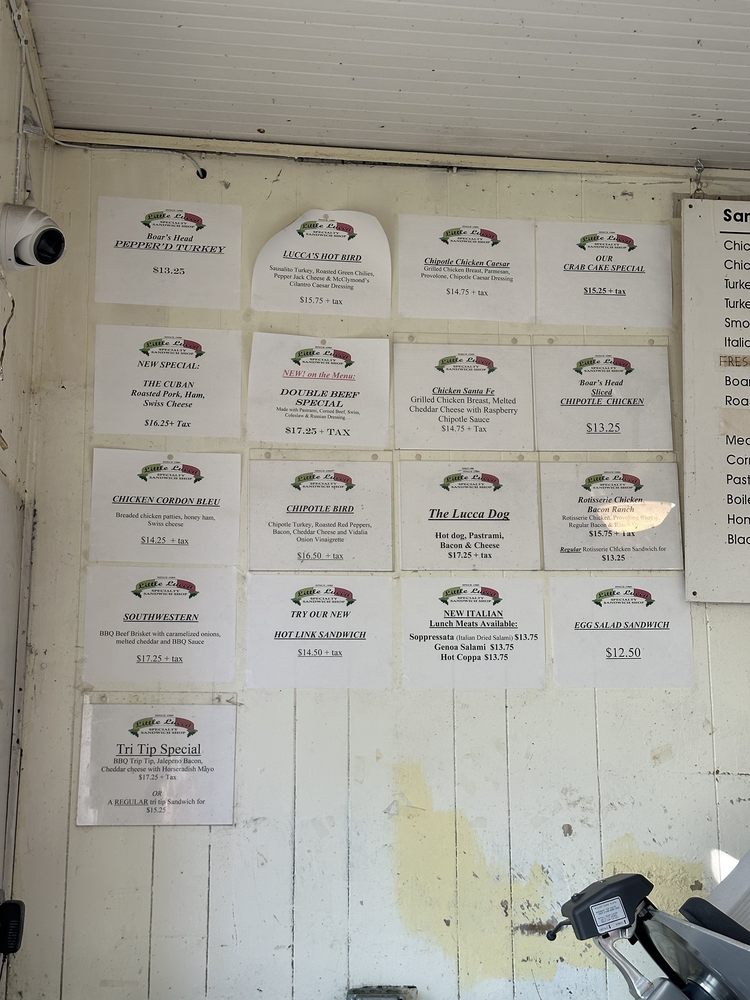 Little Lucca
SPECIALTY
SANDWICH SHOP
Boar's Head
PEPPER'D TURKEY
$13.25
Little Lucca
SPECIALTY
SANDWICH SHOP
LUCCA'S HOT BIRD
Sausalito Turkey, Roasted Green Chilies,
Pepper Jack Cheese & McClymond's
Cilantro Caesar Dressing
$15.75 + tax
Little Lucca
SPECIALTY
SANDWICH SHOP
Chipotle Chicken Caesar
Grilled Chicken Breast, Parmesan,
Provolone, Chipotle Caesar Dressing
$14.75 + tax
Little Lucca
SPECIALTY
SANDWICH SHOP
OUR
CRAB CAKE SPECIAL
$15.25 + tax
Little Lucca
SPECIALTY
SANDWICH SHOP
NEW SPECIAL:
THE CUBAN
Roasted Pork, Ham,
Swiss Cheese
$16.25+ Tax
Little Lucca
SPECIALTY
SANDWICH SHOP
NEW! on the Menu:
DOUBLE BEEF
SPECIAL
Made with Pastrami, Corned Beef, Swiss,
Coleslaw & Russian Dressing
$17.25 + TAX
Little Lucca
SPECIALTY
SANDWICH SHOP
Chicken Santa Fe
Grilled Chicken Breast, Melted
Cheddar Cheese with Raspberry
Chipotle Sauce
$14.75 + Tax
Little Lucca
SPECIALTY
SANDWICH SHOP
Boar's Head
Sliced
CHIPOTLE CHICKEN
$13.25
Little Lucca
SPECIALTY
SANDWICH SHOP
CHICKEN CORDON BLEU
Breaded chicken patties, honey ham,
Swiss cheese
$14.25 + tax
Little Lucca
SPECIALTY
SANDWICH SHOP
CHIPOTLE BIRD
Chipotle Turkey, Roasted Red Peppers,
Bacon, Cheddar Cheese and Vidalia
Onion Vinaigrette
$16.50 + tax
Little Lucca
SPECIALTY
SANDWICH SHOP
The Lucca Dog
Hot dog, Pastrami,
Bacon & Cheese
$17.25 + tax
Little Lucca
SPECIALTY
SANDWICH SHOP
Rotisserie Chicken,
Bacon Ranch
Rotisserie Chicken,
Regular Bacon &
$15.75 + Tax
Regular Rotisserie Chicken Sandwich for
$13.25
Little Lucca
SPECIALTY
SANDWICH SHOP
SOUTHWESTERN
BBQ Beef Brisket with caramelized onions,
melted cheddar and BBQ Sauce
$17.25 + tax
Little Lucca
SPECIALTY
SANDWICH SHOP
TRY OUR NEW
HOT LINK SANDWICH
$14.50 + tax
Little Lucca
SPECIALTY
SANDWICH SHOP
NEW ITALIAN
Lunch Meats Available:
Soppressata (Italian Dried Salami) $13.75
Genoa Salami $13.75
Hot Coppa $13.75
Little Lucca
SPECIALTY
SANDWICH SHOP
EGG SALAD SANDWICH
$12.50
Little Lucca
SPECIALTY
SANDWICH SHOP
Tri Tip Special
BBQ Trip Tip, Jalepeno Bacon,
Cheddar cheese with Horseradish Mayo
$17.25 + Tax
OR
A REGULAR tri tip Sandwich for
$15.25
San
Chic
Chic
Turke
Turke
Smo
Italic
FRES
Boar
Roa
Mea
Corn
Past
Boile
Hon
Blac